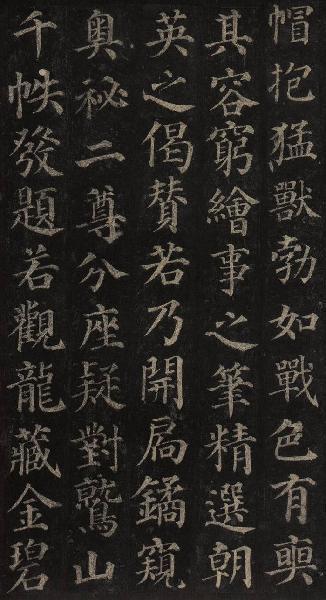 帽抱猛獸勃如戰色有奭
其容窮繪事之筆精選朝
英之偈賛若乃開扃鐍窺
奧祕二尊分座疑對鷲山
千帙發題若觀龍藏金碧